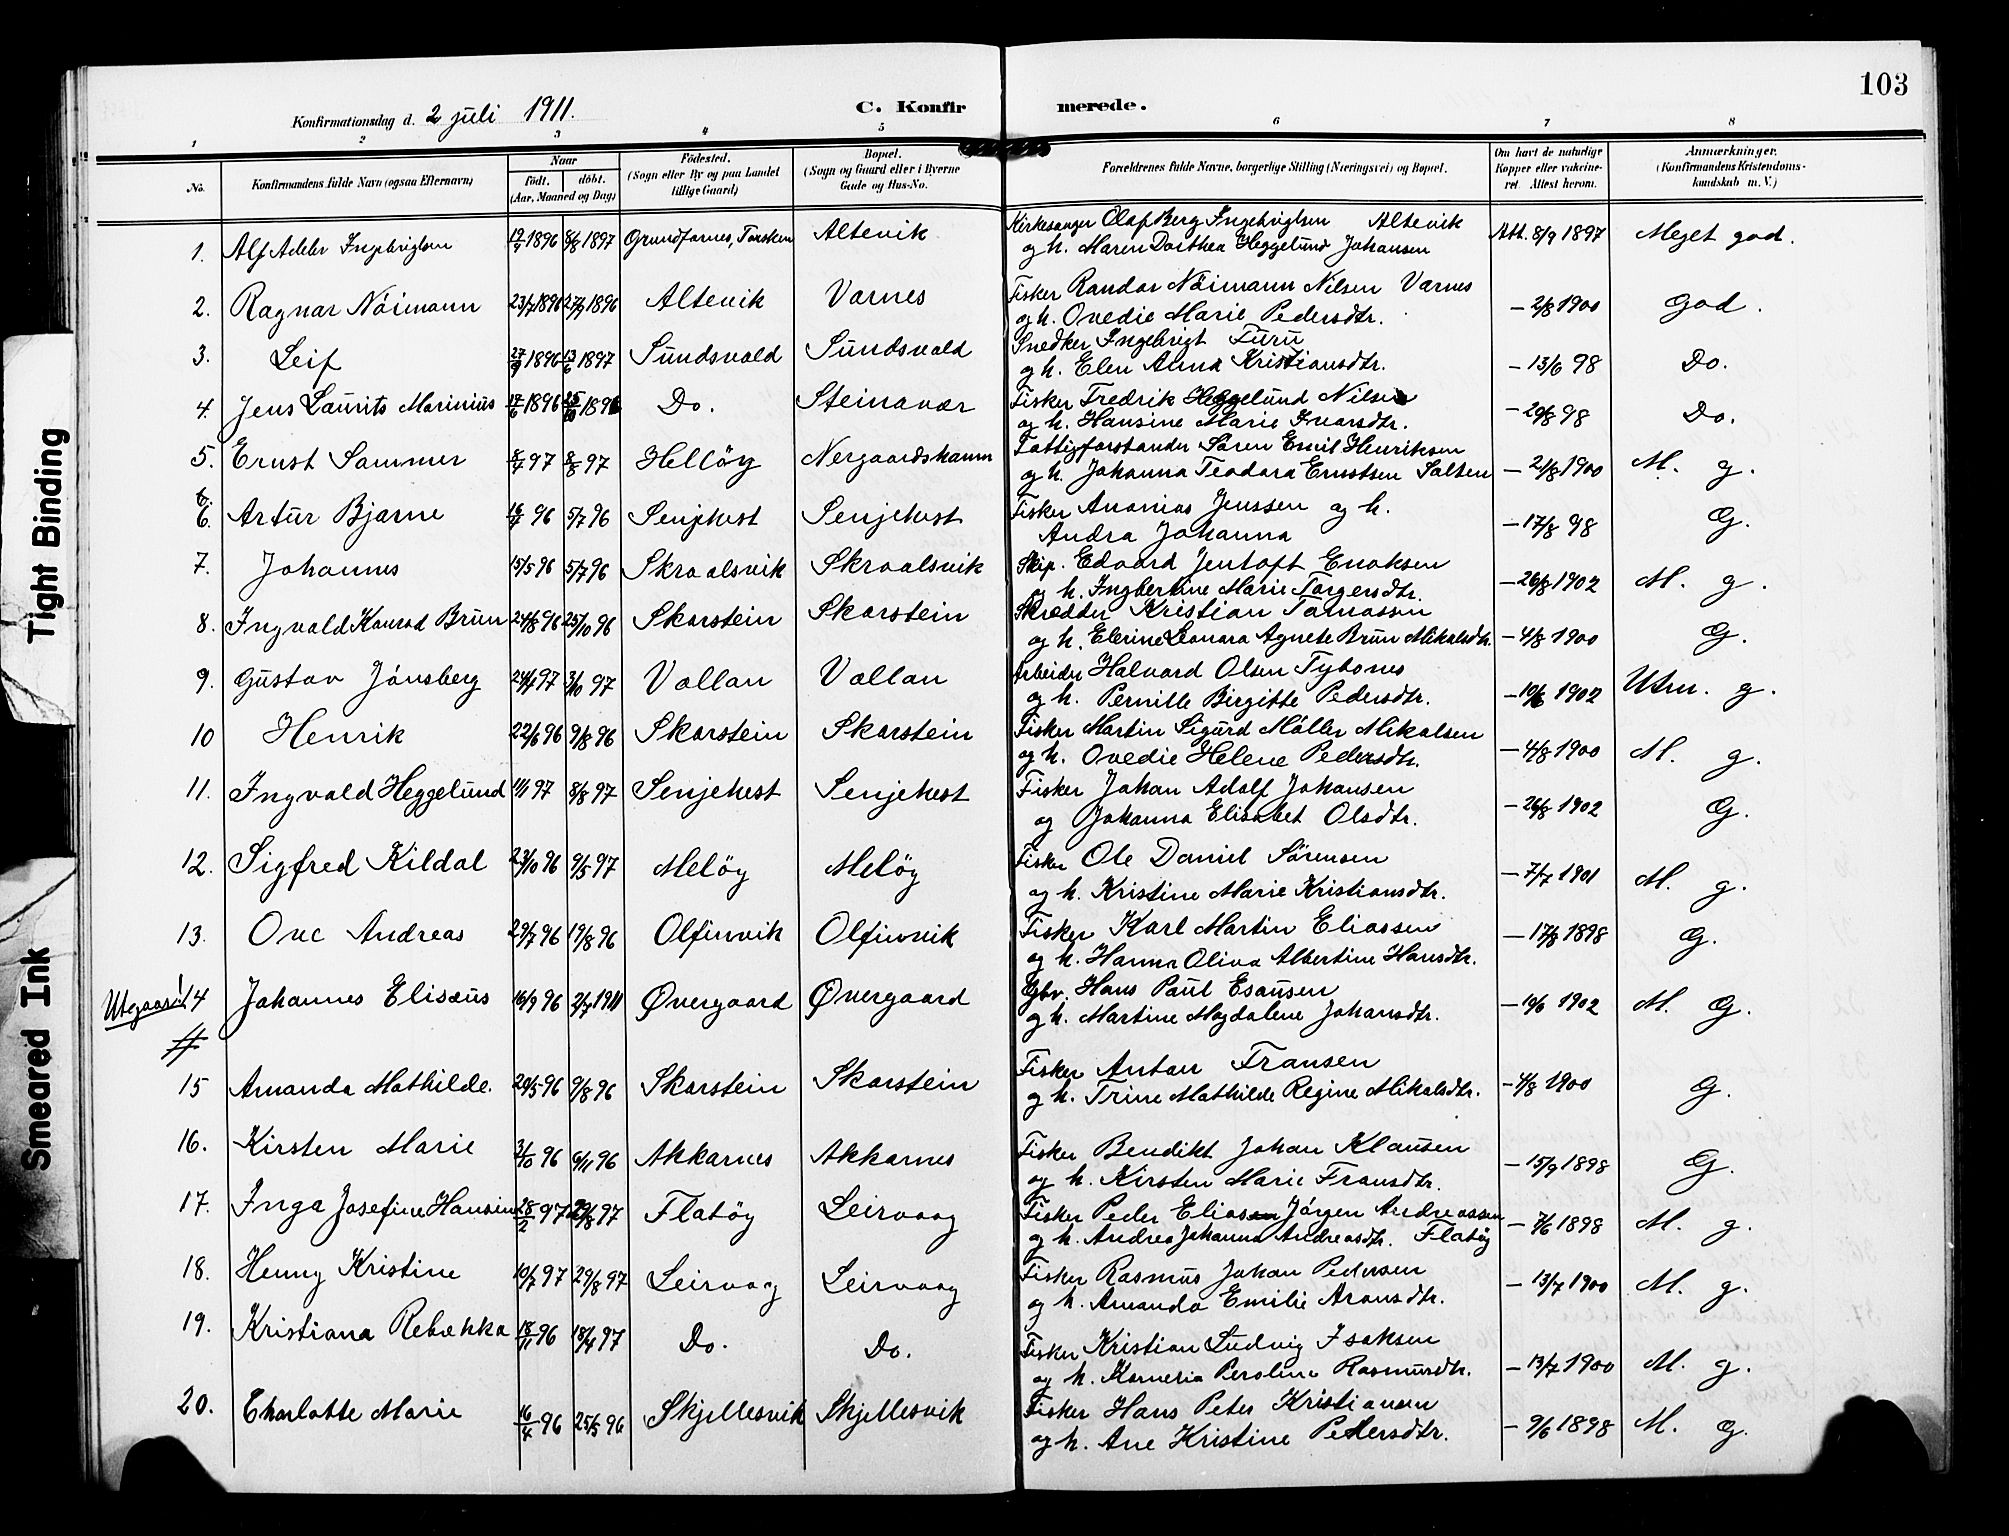 103
Konfirmationsdag d. 2 juli 1911.
C. Konfirmerede.
1 2 3 4 5 6 7 8
No.
Konfirmandens fulde Navn (ogsaa Efternavn)
Naar
født. døbt.
(Aar, Maaned og Dag)
Fødested.
(Sogn eller By og paa Landet
tillige Gaard)
Bopæl.
(Sogn og Gaard eller i Byerne
Gade og Hus-No.
Forældrenes fulde Navne, borgerlige Stilling (Næringsvei) og Bopæl.
Om havt de naturlige
Kopper eller vaccine-
ret. Attest herom.
Anmærkninger.
(Konfirmandens Kristendoms-
kundskab m. V.)
1. Alf Adeler Ingebrigtsen 19/9 1896 8/8 1897 Grundfarnes, Torsken Altevik Kirkesanger Olaf Berg Ingebrigtsen Altevik Att. 8/9 1897 Meget god.
og h. Maren Dorthea Heggelund Johansen
2. Ragnar Nöimann 23/7 1896 27/9 1896 Altevik Varnes Fisker Randor Nöimann Nilsen Varnes – 2/8 1900 God.
og h. Ovedie Marie Pedersdtr.
3. Leif 27/9 1896 13/6 1897 Sundsvald Sundsvald Snedker Ingebrigt Furu – 13/6 98 Do.
og h. Elen Anna Kristiansdtr.
4. Jens Laurits Marinius 17/6 1896 25/10 1896 Do. Steinavær Fisker Fredrik Heggelund Nilsen – 20/8 98 Do.
og h. Hansine Marie Ivarsdtr.
5. Ernst Sommer 8/4 97 8/8 97 Hellöy Nergaardshamn Fattigforstander Sören Emil Henriksen – 21/8 1900 M. g.
og h. Johanna Teodora Ernstsen Salten
6. Artur Bjarne 16/4 96 5/7 96 Senjehest Senjehest Fisker Ananias Jenssen og h. – 17/8 98 G.
Andra Johanna
7. Johannes 15/5 96 5/7 96 Skroalsvik Skroalsvik Skip. Edvard Jentoft Enoksen – 26/8 1902 M. g.
og h. Ingbertine Marie Torgersdtr.
8. Ingvald Konrad Brun 24/8 96 25/10 96 Skarstein Skarstein Skrædder Kristian Tomassen – 4/8 1900 G.
og h. Elerine Leonara Agnete Brun Mikalsdtr.
9. Gustav Jönsberg 24/4 97 3/10 97 Vollan Vollan Arbeider Halvard Olsen Tybones – 10/6 1902 Utm. g.
og h. Pernille Birgitte Pedersdtr.
10 Henrik 22/6 96 9/8 96 Skarstein Skarstein Fisker Martin Sigurd Møller Mikalsen – 4/8 1900 M. g.
og h. Ovedie Helene Pedersdtr.
11. Ingvald Heggelund 1/1 97 8/8 97 Senjehest Senjehest Fisker Johan Adolf Johansen – 26/8 1902 G.
og Johanna Elisabet Olsdtr.
12. Sigfred Kildal 23/10 96 9/5 97 Melöy Melöy Fisker Ole Daniel Sørensen – 7/7 1901 M. g.
og h. Kristine Marie Kristiansdtr.
13. Ove Andreas 29/7 96 19/8 96 Olfinvik Olfinvik Fisker Karl Martin Eliassen – 17/8 1898 G.
og h. Hanna Oliva Albertine Hansdtr.
14 Johannes Elisæus 16/9 96 2/7 1911 Øvergaard Øvergaard Gbr. Hans Paul Esausen – 10/6 1902 M. G.
og h. Martine Magdalene Johansdtr.
15 Amanda Mathilde. 20/5 96 9/8 96 Skarstein Skarstein Fisker Anton Fransen – 4/8 1900 G.
og h. Trine Mathilde Regine Mikalsdtr.
16. Kirsten Marie 3/10 96 6/11 96 Akkarnes Akkarnes Fisker Bendikt Johan Klausen – 15/9 1898 G.
og h. Kirsten Marie Fransdtr.
17. Inga Josefine Hansine 28/2 97 29/8 97 Flatöy Leirvaag Fisker Peder Eliasen Jørgen Andreassen – 7/6 1898 M. g.
og h. Andrea Johanna Andreasdtr. Flatöy
18. Henny Kristine 10/7 97 29/8 97 Leirvaag Leirvaag Fisker Rasmus Johan Pedersen – 13/7 1900 M. g.
og h. Amanda Emilie Aronsdtr.
19. Kristiana Rebekka 18/11 96 18/4 97 Do. Do. Fisker Kristian Ludvig Isaksen – 13/7 1900 M. g.
og h. Kornelia Peroline Rasmusdtr.
20. Charlotte Marie 16/4 96 25/5 96 Skjellesvik Skjellesvik Fisker Hans Peter Kristiansen – 9/6 1898 M. G.
og h. Ane Kristine Pedersdtr.
Tight Binding
Smeared Ink